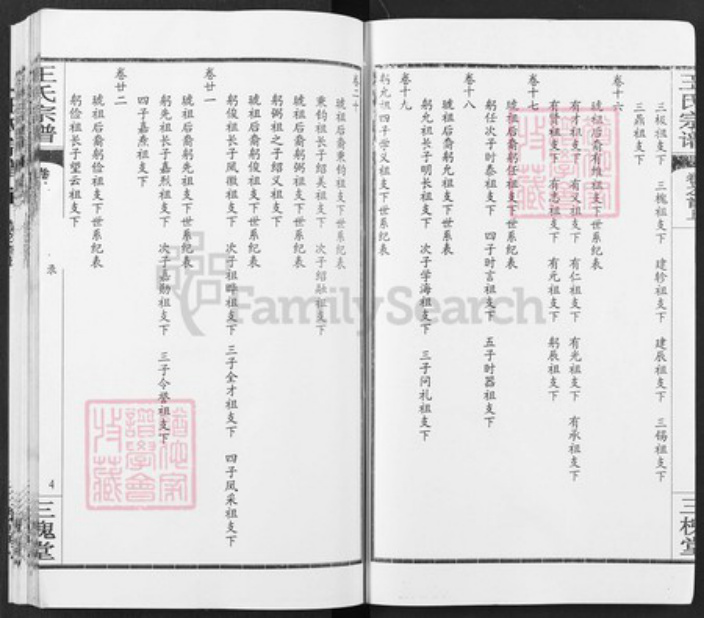 王氏宗谱
卷之首上
三槐堂
三板祖支下 三槐祖支下 建轸祖支下 建辰祖支下 三锡祖支下
三鼎祖支下
卷十六
琥祖后裔有维祖支下世系纪表
有才祖支下 有义祖支下 有仁祖支下 有光祖支下 有承祖支下
有贤祖支下 有志祖支下 有元祖支下 躬辰祖支下
卷十七
琥祖后裔躬任祖支下世系纪表
躬任次子时泰祖支下 四子时言祖支下 五子时器祖支下
卷十八
琥祖后裔躬允祖支下世系纪表
躬允祖长子明长祖支下 次子学海祖支下 三子问礼祖支下
卷十九
躬允祖四子学义祖支下世系纪表
卷二十
琥祖后裔秉钧祖支下世系纪表
秉钧祖长子绍美祖支下 次子绍融祖支下
琥祖后裔躬弼祖支下世系纪表
躬弼祖之子绍义祖支下
琥祖后裔躬俊祖支下世系纪表
躬俊祖长子凤徽祖支下 次子祖晔祖支下 三子全才祖支下 四子凤采祖支下
卷廿一
琥祖后裔躬先祖支下世系纪表
躬先祖长子嘉烈祖支下 次子嘉勋祖支下 三子令誉祖支下
四子嘉焘祖支下
卷廿二
琥祖后裔躬俭祖支下世系纪表
躬俭祖长子望云祖支下
王氏宗谱
卷
录
4
三槐堂
FamilySearch